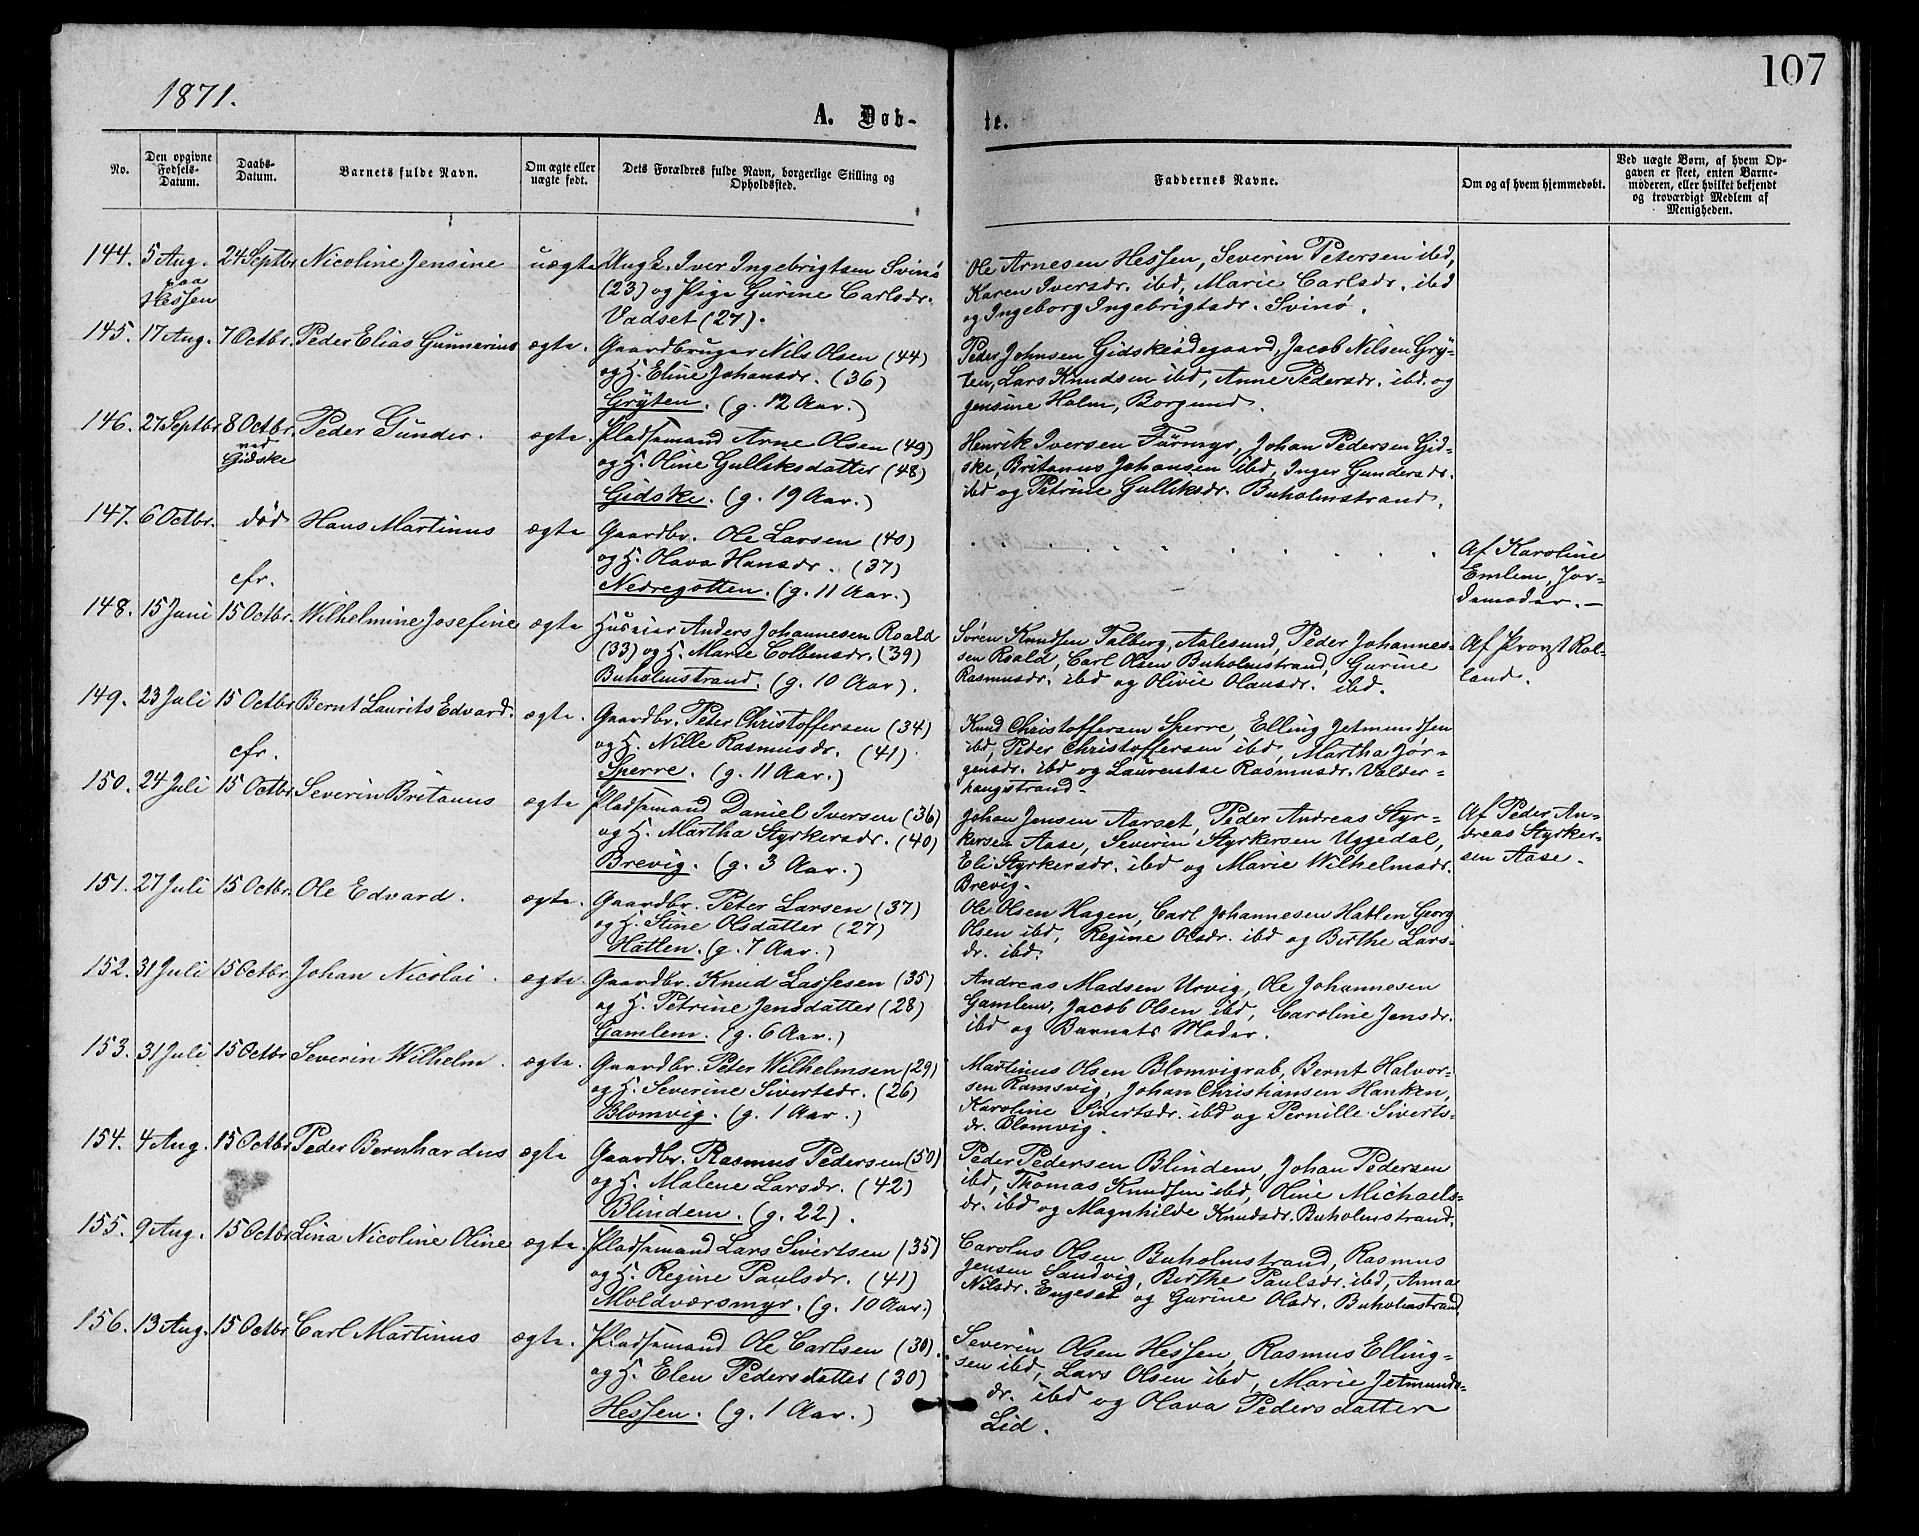 107
1871.
A. Døb-
te.
No.
Den opgivne
Fødsels-
Datum.
Daabs-
Datum.
Barnets fulde Navn.
Om ægte eller
uægte født.
Dets Forældres fulde Navn, borgerlige Stilling og
Opholdssted.
Faddernes Navne.
Om og af hvem hjemmedøbt.
Ved uægte Børn, af hvem Op-
gaven er skeet, enten Barne-
moderen, eller hvilket bekjendt
og troværdigt Medlem af
Menigheden.
144. 5 Aug. 24 Septbr Nicoline Jensine uægte UngK. Iver Ingebrigtsen Svinø
paa
Hessen
(23) og Pige Gurine Carlsdr.
Vadset (27).
Ole Arnesen Hessen, Severin Petersen ibd,
Karen Iversdr. ibd, Marie Carlsdr. ibd
og Ingeborg Ingebrigtsdr. Svinø.
145. 17 Aug. 7 Octbr. Peder Elias Gunnerius ægte. Gaardbruger Nils Olsen (44)
og H. Eline Johansdr. (36)
Gryten. (g. 12 Aar.)
Peder Johnsen Gidskeødegaard, Jacob Nilsen Gry-
ten, Lars Knudsen ibd, Anne Pedersdr. ibd. og
Jensine Holm, Borgund.
146. 27 Septbr 8 Octbr. Peder Gunder. ægte. Pladsemand Arne Olsen (49)
ved
Gidske
og H. Oline Gulliksdatter (48)
Gidske. (g. 19 Aar.)
Henrik Iversen Furmyr, Johan Pedersen Gid-
ske, Britanus Johansen ibd, Inger Gundersdr.
ibd og Petrine Gulliksdr. Buholmstrand.
147. 6 Octbr. død Hans Martinus ægte Gaardbr. Ole Larsen (40)
og H. Olava Hansdr. (37)
Nedregotten. (g. 11 Aar.)
Af Karoline
Emlem, Jor-
demoder.
cfr.
148. 15 Juni 15 Octbr. Wilhelmine Josefine ægte Huseier Anders Johannesen Roald
(33) og H. Marie Colbensdr. (39)
Buholmstrand. (g. 10 Aar).
Søren Knudsen Talberg, Aalesund, Peder Johannes-
sen Roald, Carl Olsen Buholmstrand, Gurine
Rasmusdr. ibd og Olivie Olausdr. ibd.
Af Provst Rol-
land.
149. 23 Juli 15 Octbr Bernt Laurits Edvard. ægte. Gaardbr. Peter Christoffersen (34)
og H. Nille Rasmusdr. (41).
Sperre. (g. 11 Aar.)
Knud Christoffersen Sperre, Elling Jetmundsen
ibd, Peder Christoffersen ibd, Martha Jør-
gensdr. ibd og Laurentse Rasmusdr. Valder-
haugstrand.
cfr.
150. 24 Juli 15 Octbr Severin Britanus ægte Pladsemand Daniel Iversen (36)
og H. Martha Styrkersdr. (40)
Brevig. (g. 3 Aar.)
Johan Jensen Aarset, Peder Andreas Styr-
kersen Aase, Severin Styrkersen Uggedal,
Eli Styrkersdr. ibd og Marie Wilhelmsdr.
Brevig.
Af Peder An-
dreas Styrker-
sen Aase.
151. 27 Juli 15 Octbr. Ole Edvard. ægte. Gaardbr. Peter Larsen (37)
og H. Stine Olsdatter (27)
Hatlen. (g. 7 Aar.)
Ole Olsen Hagen, Carl Johannesen Hatlen, Georg
Olsen ibd, Regine Olsdr. ibd og Birthe Lars-
dr. ibd.
152. 31 Juli 15 Octbr Johan Nicolai. ægte. Gaardbr. Knud Lassesen (35)
og H. Petrine Jensdatter (28)
Gamlem. (g. 6 Aar.)
Andreas Madsen Urvig, Ole Johannesen
Gamlem, Jacob Olsen ibd, Caroline Jensdr.
ibd og Barnets Moder.
153. 31 Juli 15 Octbr Severin Wilhelm. ægte. Gaardbr. Peter Wilhelmsen (29)
og H. Severine Sivertsdr. (26)
Blomvig. (g. 1 Aar.)
Martinus Olsen Blomvigrab, Bernt Halvor-
sen Ramsvig, Johan Christiansen Hanken,
Karoline Sivertsdr. ibd og Pernille Siverts-
dr. Blomvig.
154. 4 Aug. 15 Octbr Peder Bernhardus ægte Gaardbr. Rasmus Pedersen (50)
og H. Malene Larsdr. (42)
Blindem. (g. 22).
Peder Pedersen Blindem, Johan Pedersen
ibd, Thomas Knudsen ibd, Oline Michaels-
dr. ibd og Magnhilde Knudsdr. Buholmstrand.
155. 9 Aug. 15 Octbr Lina Nicoline Oline ægte. Pladsemand Lars Sivertsen (35)
og H. Regine Paulsdr. (41)
Moldværsmyr. (g. 10 Aar.)
Carolus Olsen Buholmstrand, Rasmus
Jensen Sandvig, Birthe Paulsdr. ibd, Anna
Nilsdr. Engeset og Gurine Olsdr. Buholmstrand.
156. 13 Aug. 15 Octbr. Carl Martinus ægte. Pladsemand Ole Carlsen (30).
og H. Elen Pedersdatter (30)
Hessen. (g. 1 Aar.)
Severin Olsen Hessen, Rasmus Elling-
sen ibd, Lars Olsen ibd, Marie Jetmunds-
dr. ibd og Olava Pedersdatter
Lid.